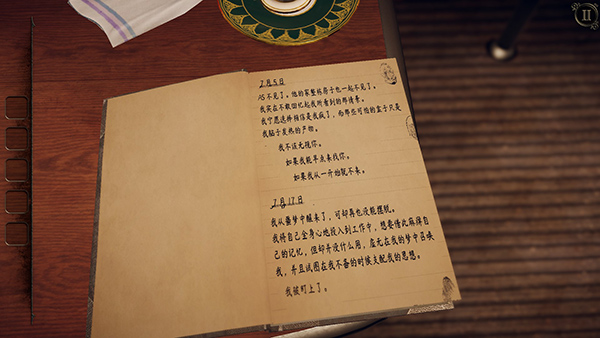 II
7月5日
AS不见了。他的家整栋房子也一起不见了。
我实在不敢回忆起我所看到的那情景。
我宁愿选择相信是我疯了，而那些可怕的盒子只是
我脑子发热的产物。
我不该无视你。
如果我能早点来找你。
如果我从一开始就不来。
7月17日
我从噩梦中醒来了，可却再也没能摆脱。
我将自己全身心地投入到工作中，想要借此麻痹自
己的记忆，但却并没什么用，虚无在我的梦中召唤
我，并且试图在我不备的时候支配我的思想。
我被盯上了。